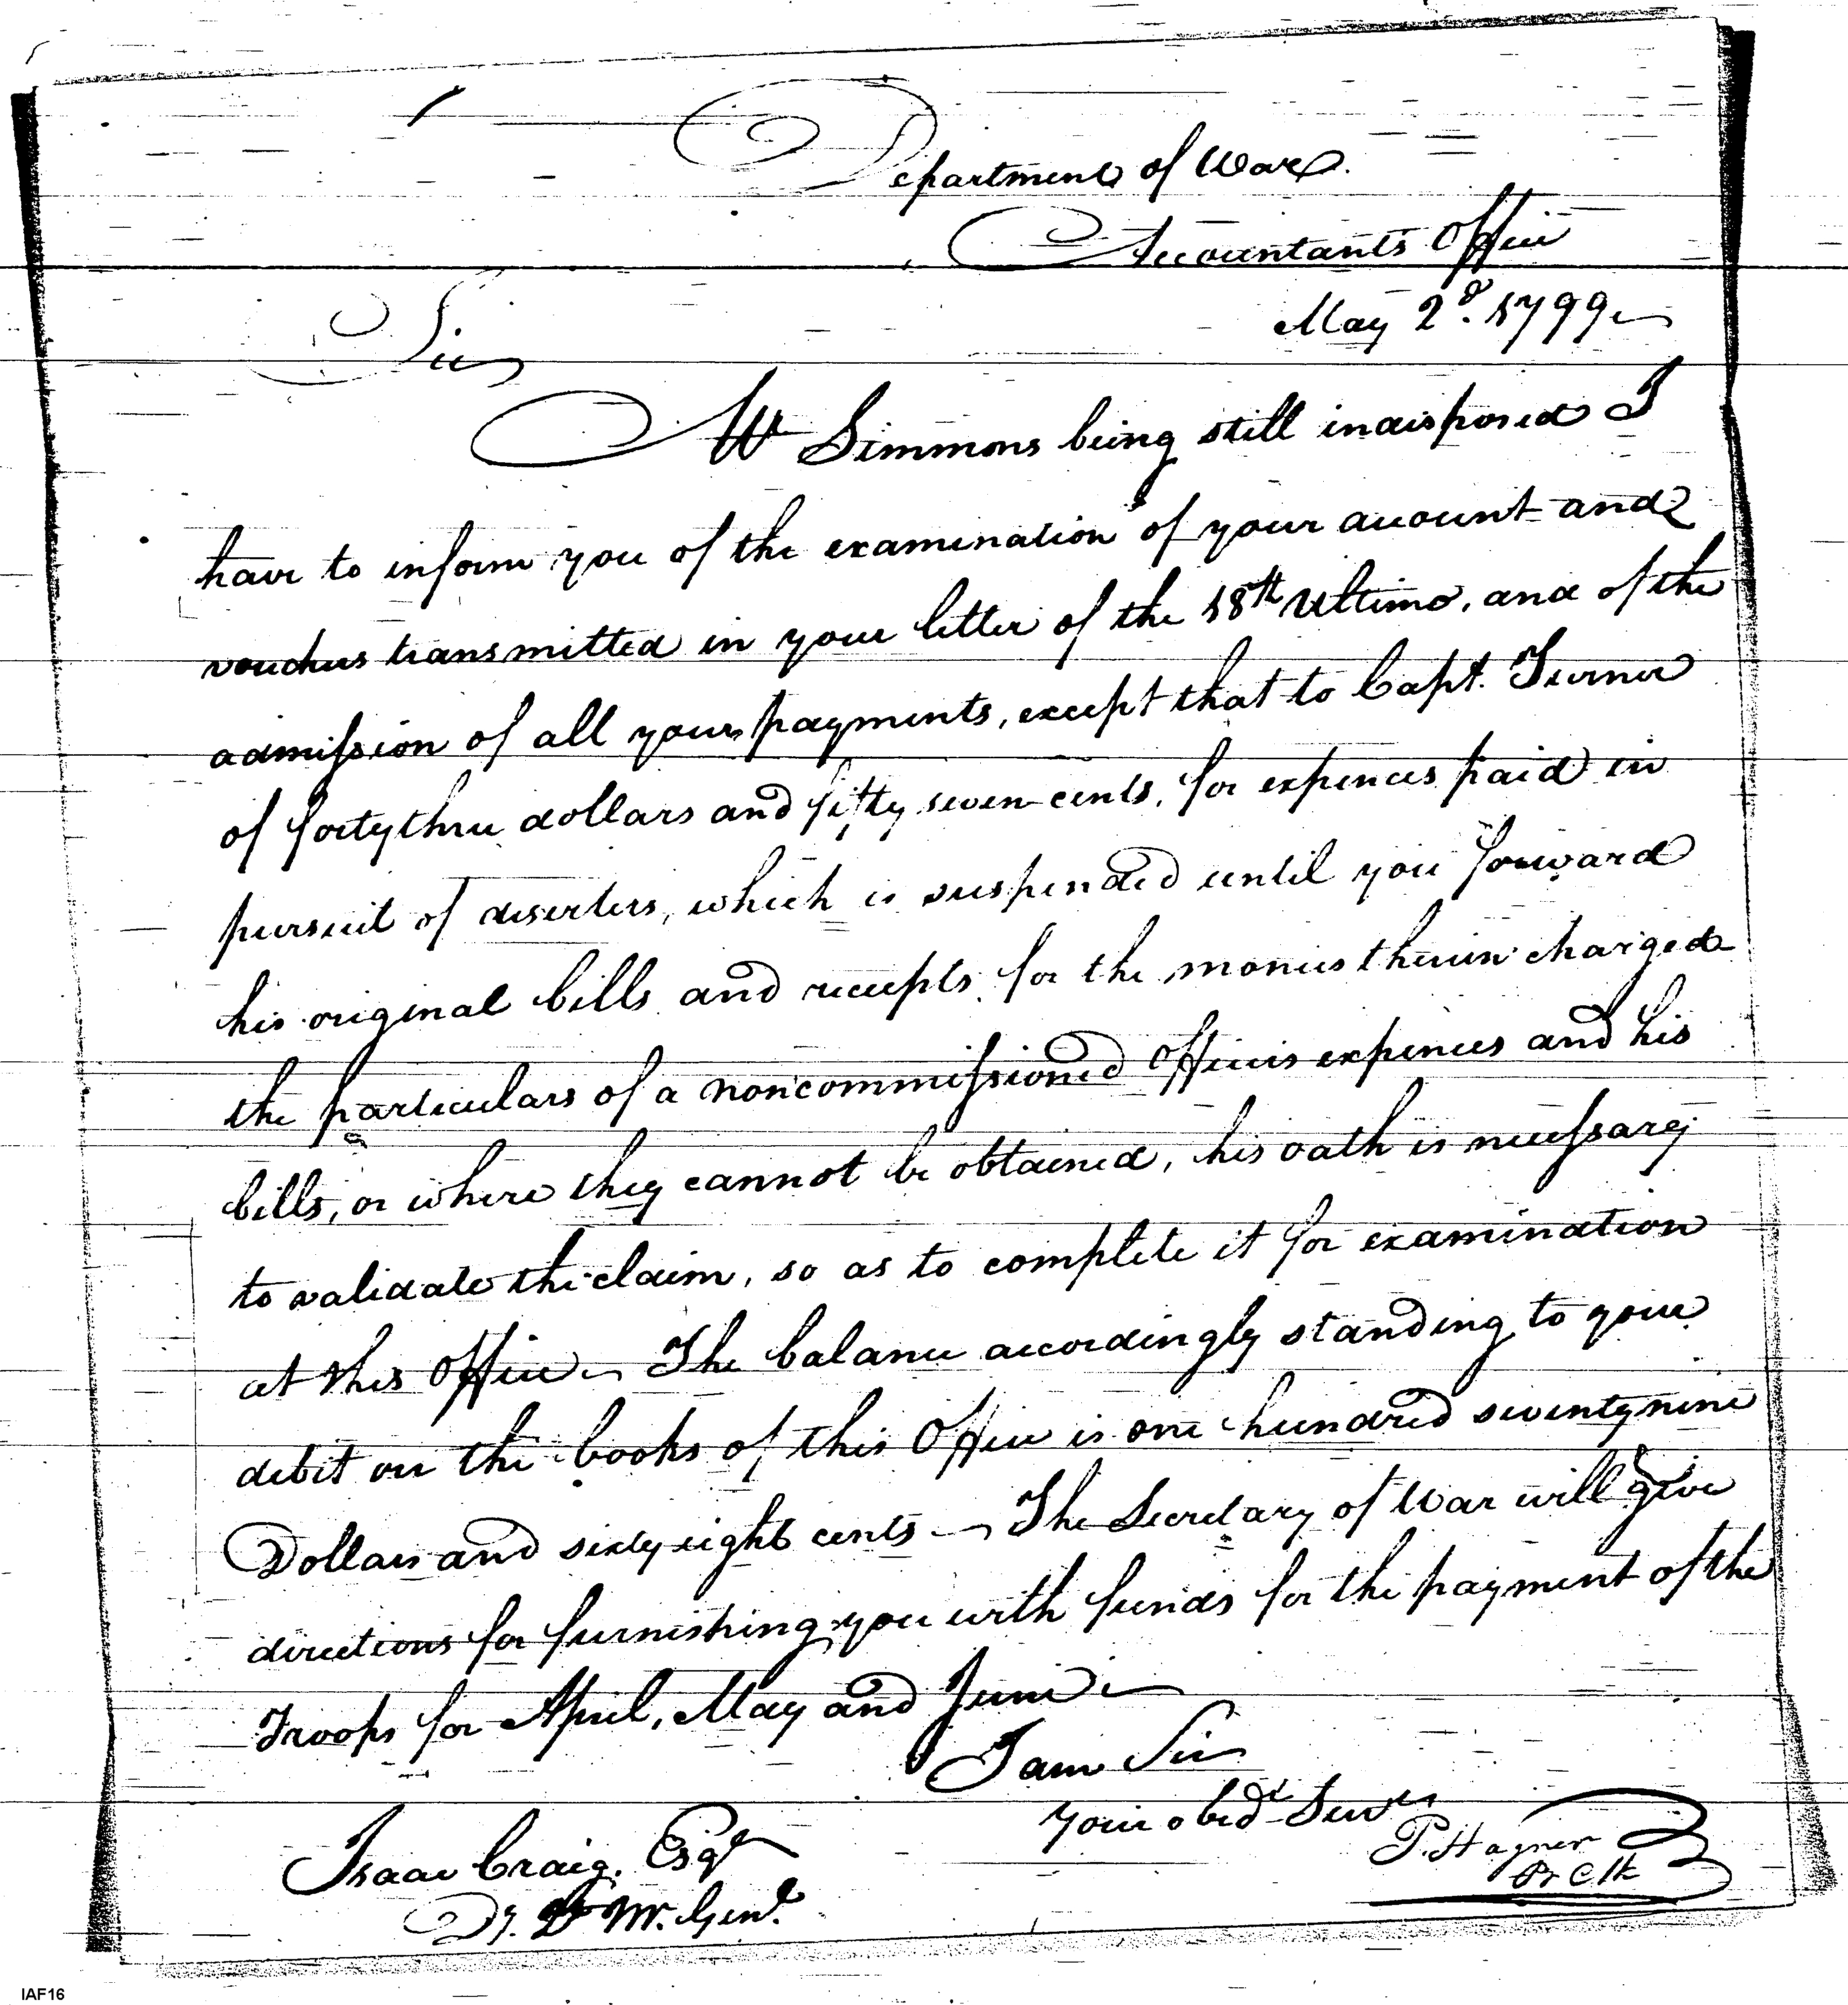 Department of War.
Accountants Office
May 2d. 1799
Sir
Mr Simmons being still indisposed I
have to inform you of the examination of your account and
vouchers transmitted in your letter of the 18th Ultimo, and of the
admission of all your payments, except that to Capt. Turner
of forty three dollars and fifty seven cents, for expences paid in
pursuit of deserters, which is suspended until you forward
his original bills and receipts for the monies therein charged
the particulars of a noncommissioned Officers expences and his
bills, or where they cannot be obtained, his oath is necessary
to validate the claim, so as to complete it for examination
at this Office. The balance accordingly standing to your
debit on the books of this Office is one hundred seventy nine
Dollars and sixty eight cents — The Secretary of War will give
directions for furnishing you with funds for the payment of the
Troops for April, May and June
I am Sir
Your obedt. Servt.
P. Hagner
Pr Clk
Isaac Craig. Esqr
Dy. Q Mr. Genl.
IAF16